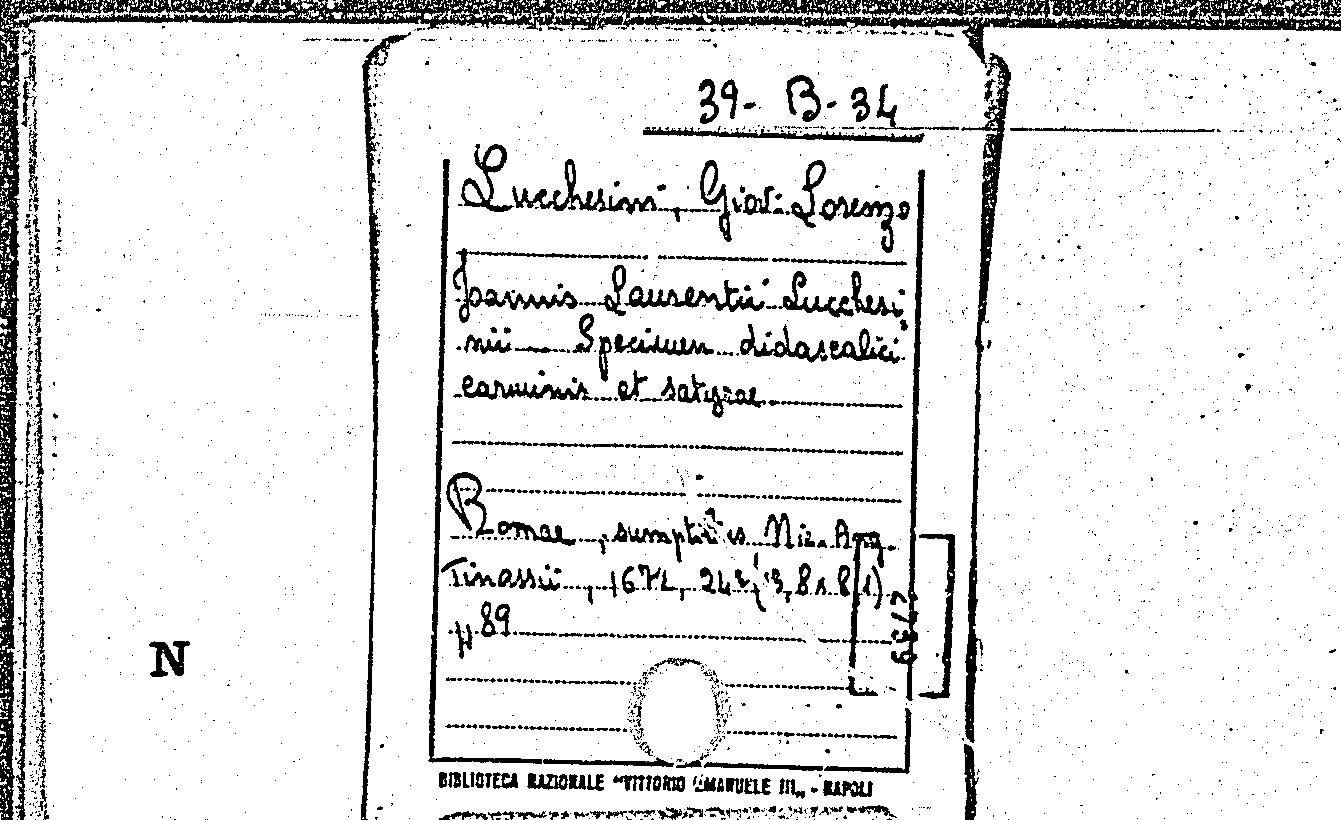 39- B- 34
Lucchesini, Giov. Lorenzo
Joannis Laurentii Lucchesi,
nii Specimen didascalici
carminis et satyrae
Romae, sumptibus Nic. Ang.
Tinassii, 1672, 24º (13,8 x 8,1)
p 89
N
BIBLIOTECA NAZIONALE "VITTORIO EMANUELE III„ - NAPOLI